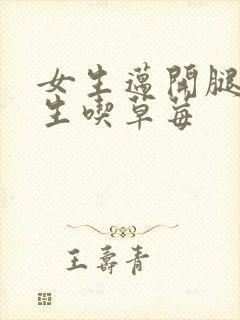 女生邁開腿
生喫草莓
王壽青